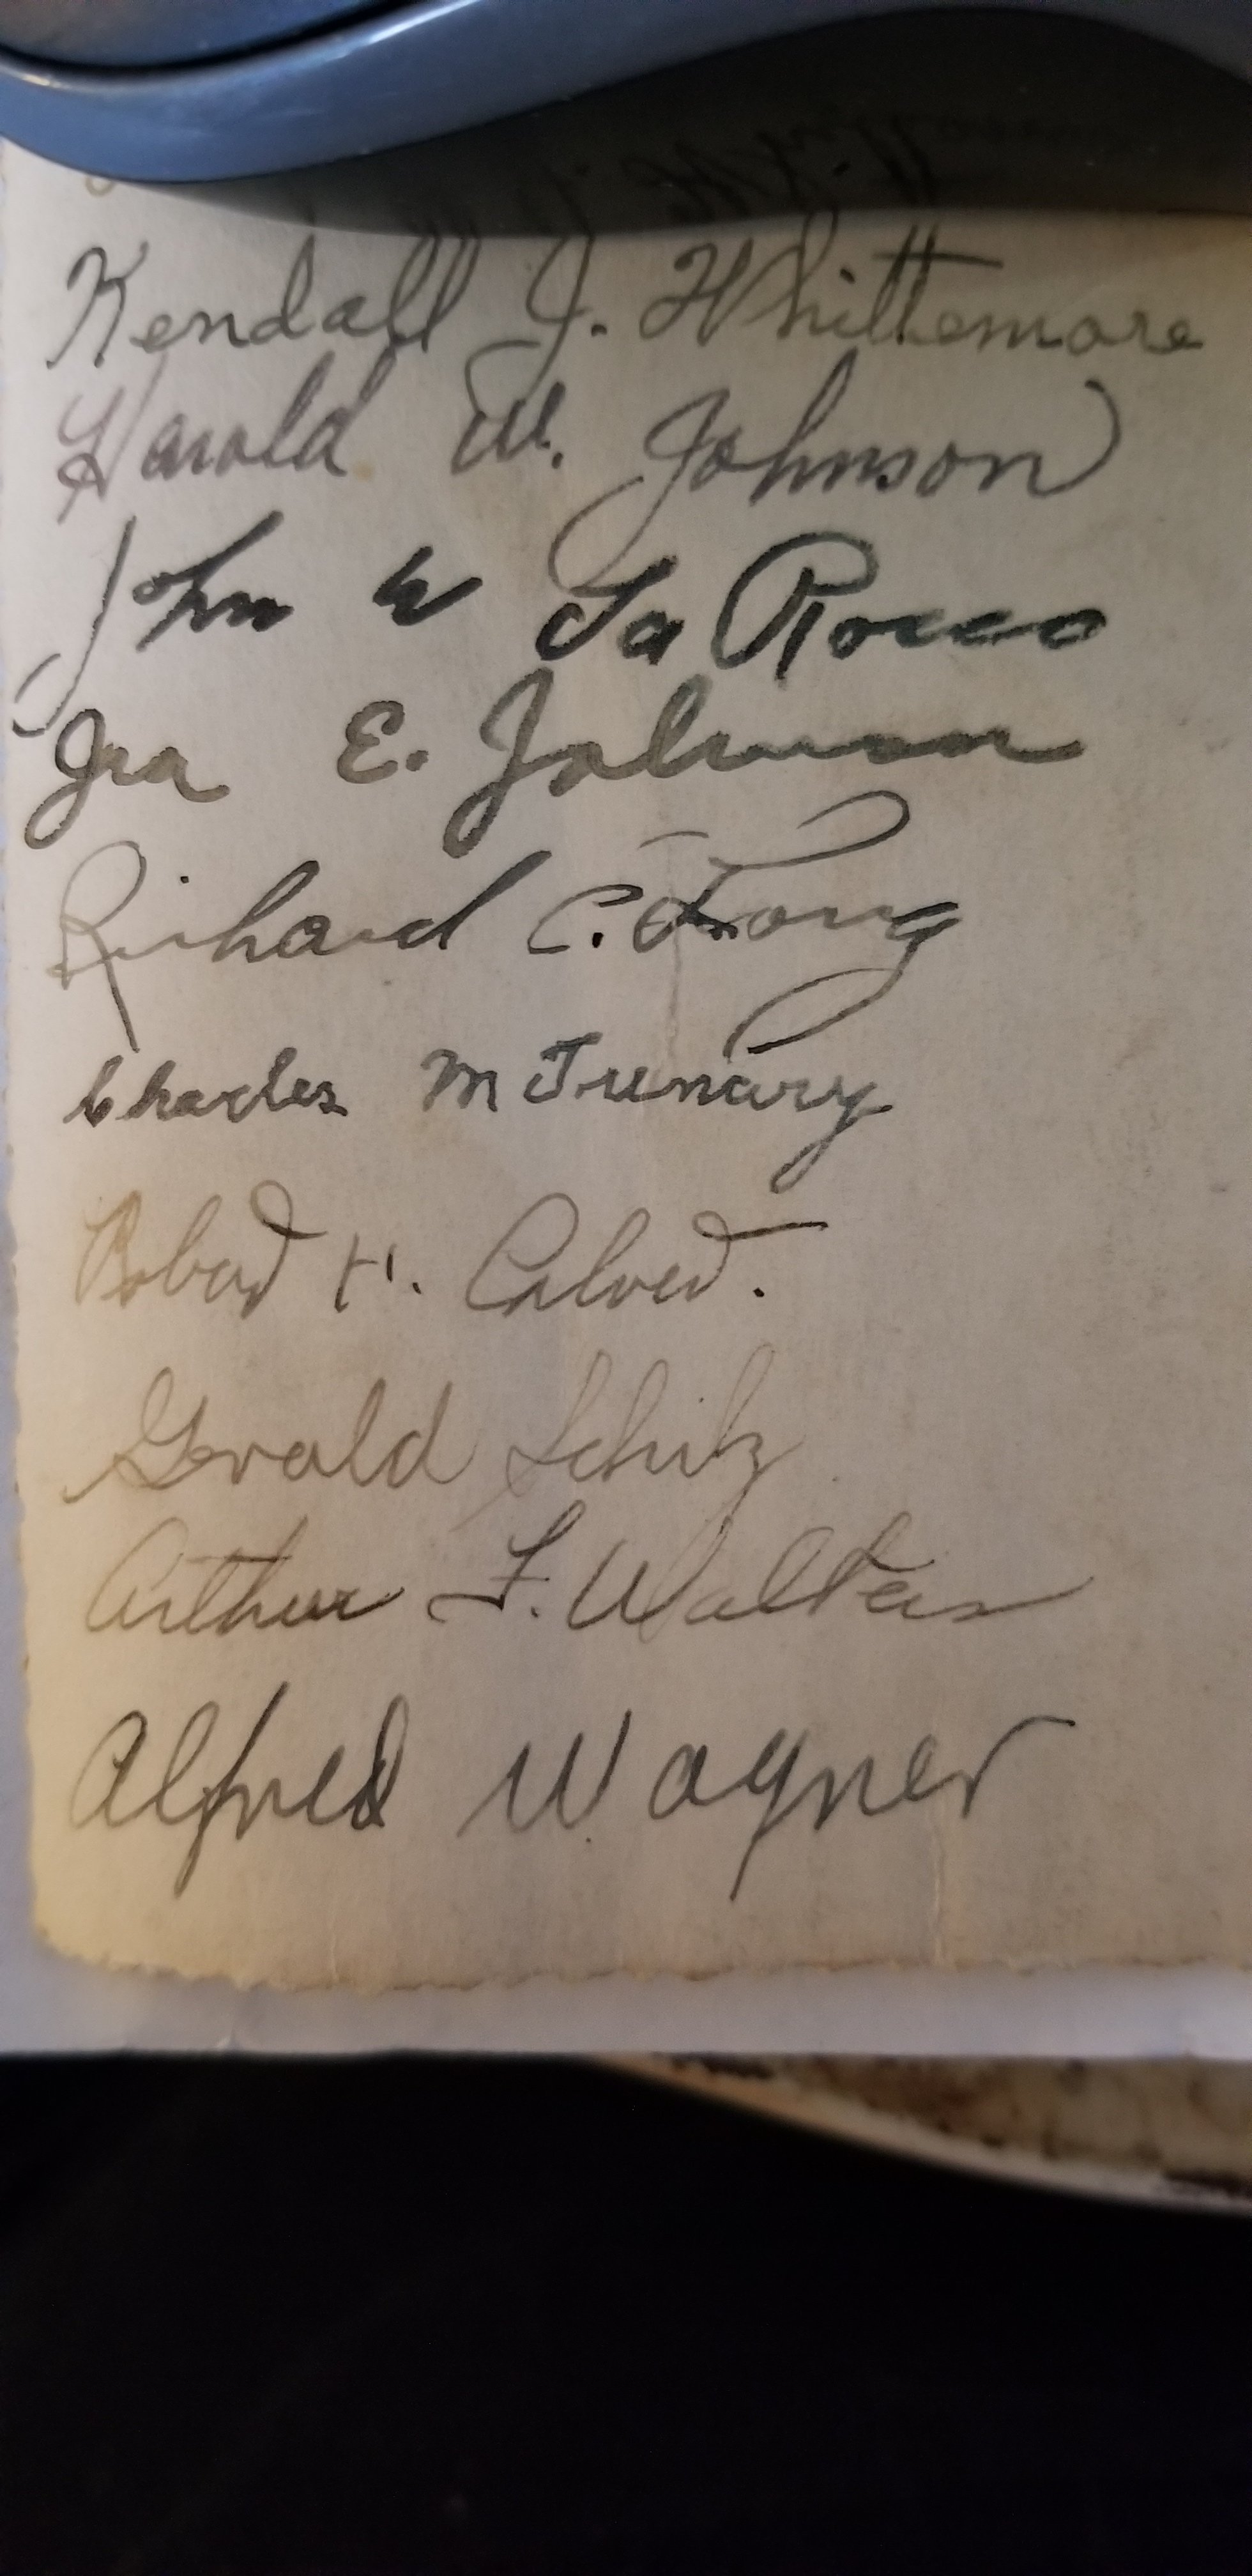 Kendall J. Whittemore
Harold W. Johnson
John W La Rocco
Ira E. Johnson
Richard C. Long
Charles M Trunary
Robert H. Calvert.
Gerald Schilz
Arthur F. Walters
Alfred Wagner